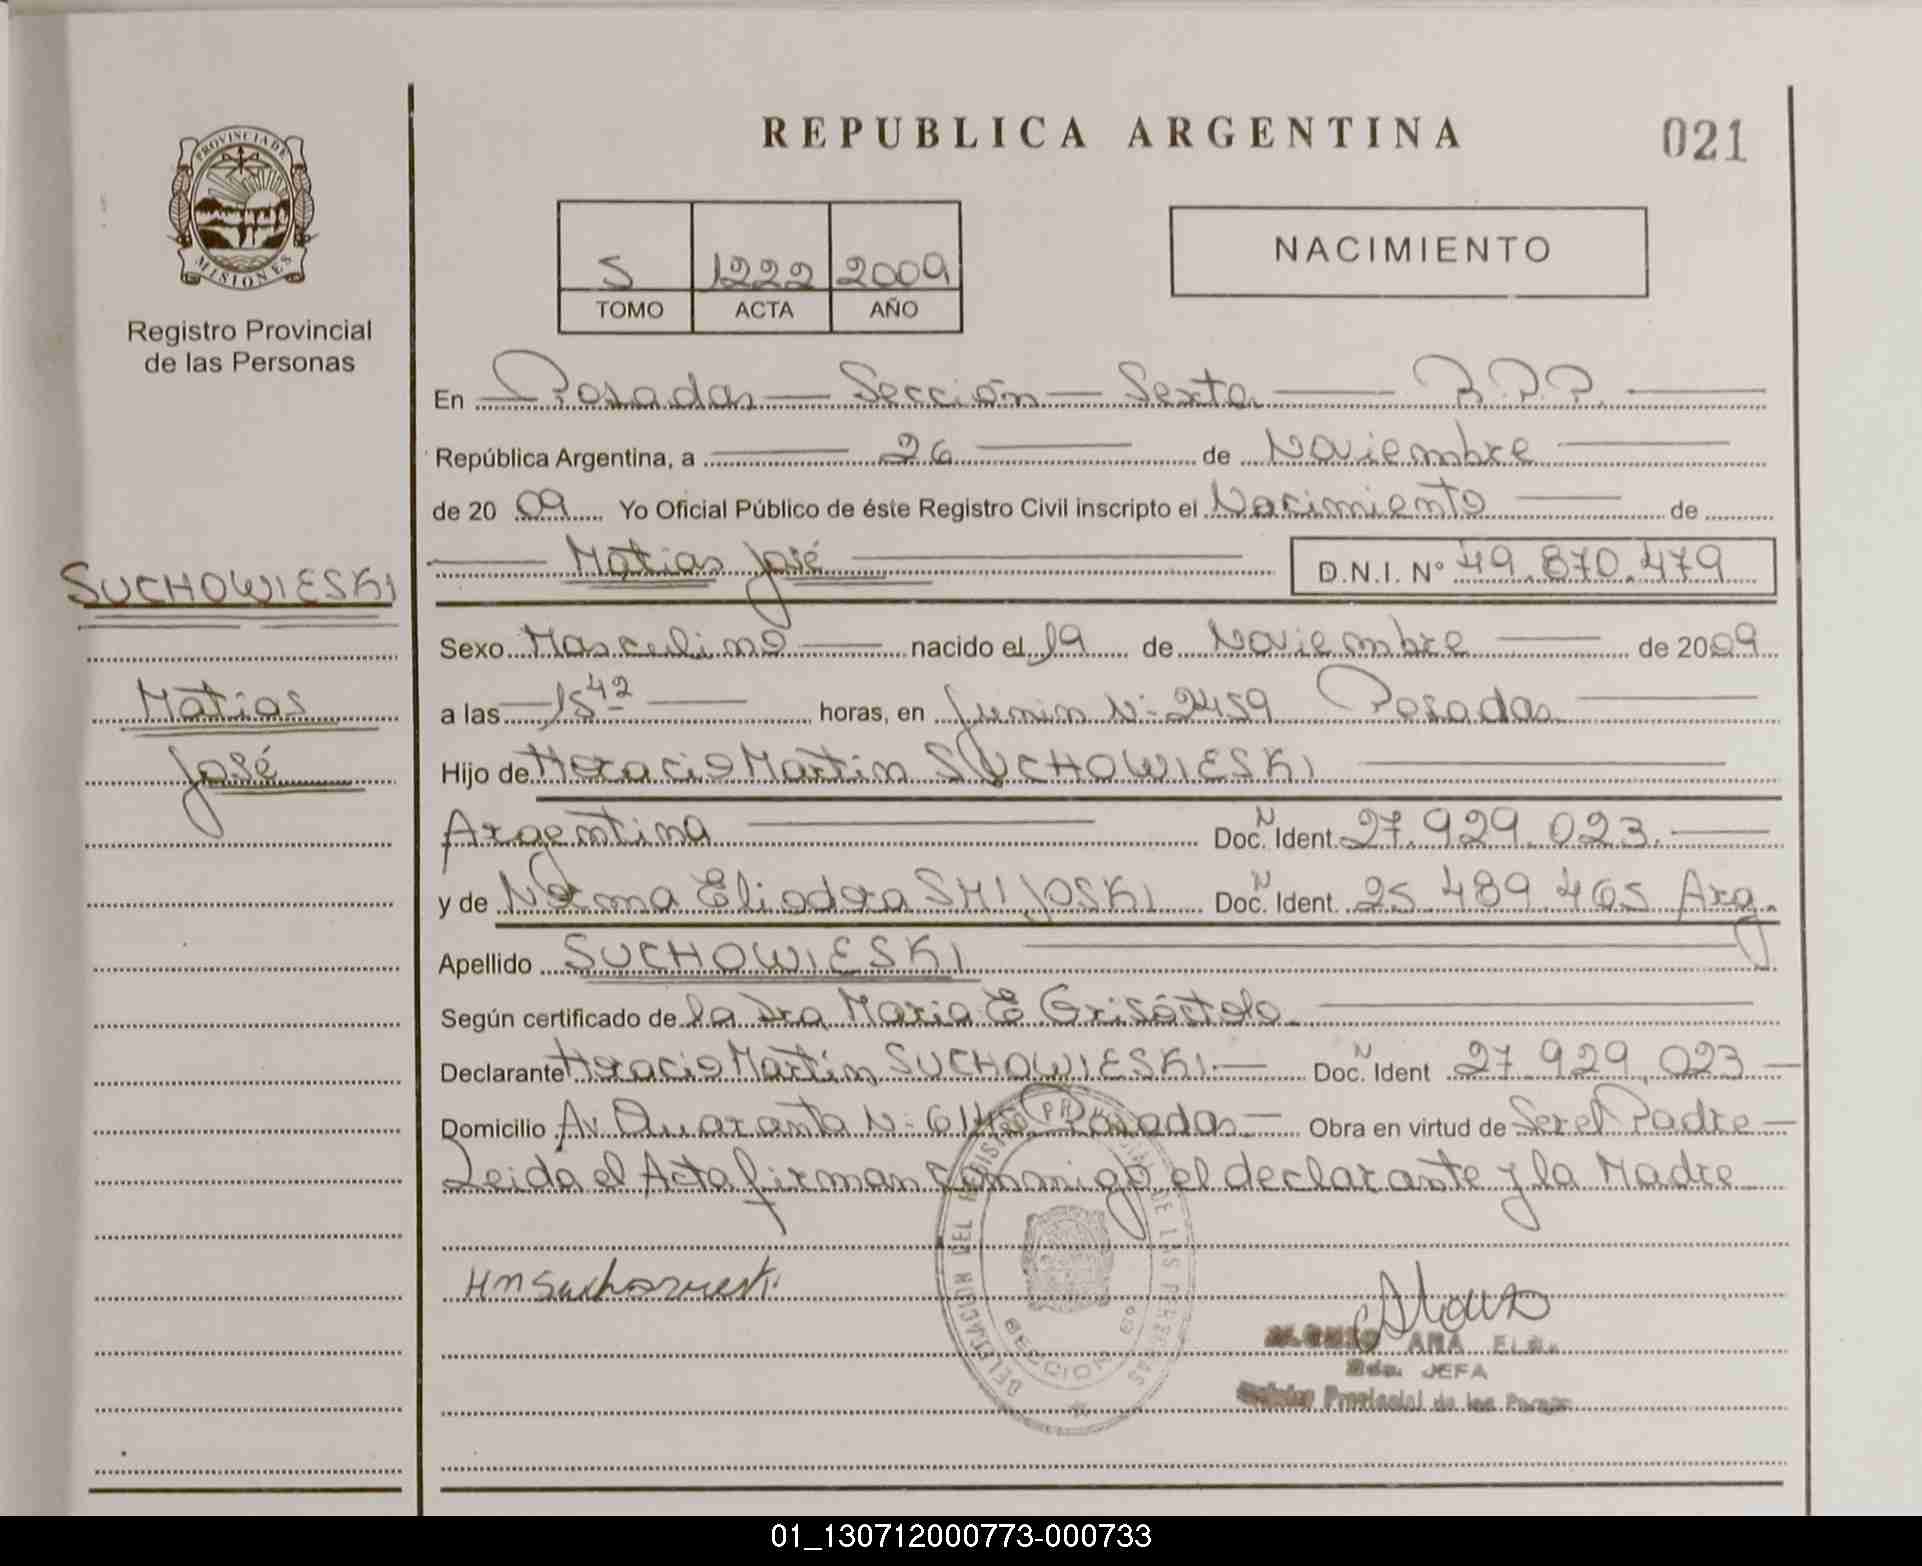 REPUBLICA ARGENTINA
021
PROVINCIA DE
MISIONES
Registro Provincial
de las Personas
5 1222 2009
TOMO ACTA AÑO
NACIMIENTO
En Posadas — Sección — Sexta — R.P.P. —
República Argentina, a — 26 — de Noviembre —
de 2009 Yo Oficial Público de éste Registro Civil inscripto el Nacimiento — de
— Matias José — D.N.I. N° 49.870.479
SUCHOWIESKI
Matias
José
Sexo Masculino — nacido el 19 de Noviembre — de 2009
a las — 15 42 — horas, en Junin N: 2459 Posadas —
Hijo de Horacio Martin SUCHOWIESKI —
Argentina — Doc. N Ident. 27.929.023. —
y de Norma Eliodora SMIJOSKI Doc. N Ident. 25.489.465 Arg.
Apellido SUCHOWIESKI —
Según certificado de la Dra Maria E —
Declarante Horacio Martín SUCHOWIESKI — Doc. N Ident 27.929.023 —
Domicilio Av Quaranta N: Posadas — Obra en virtud de Ser el Padre —
Leida el Acta firman conmigo el declarante y la Madre
HM Suchowieski
DELEGACION DEL REGISTRO PROVINCIAL DE LAS PERSONAS
SECCION 6°
ALONSO ANA
JEFA
Registro Provincial de las Person
01_130712000773-000733